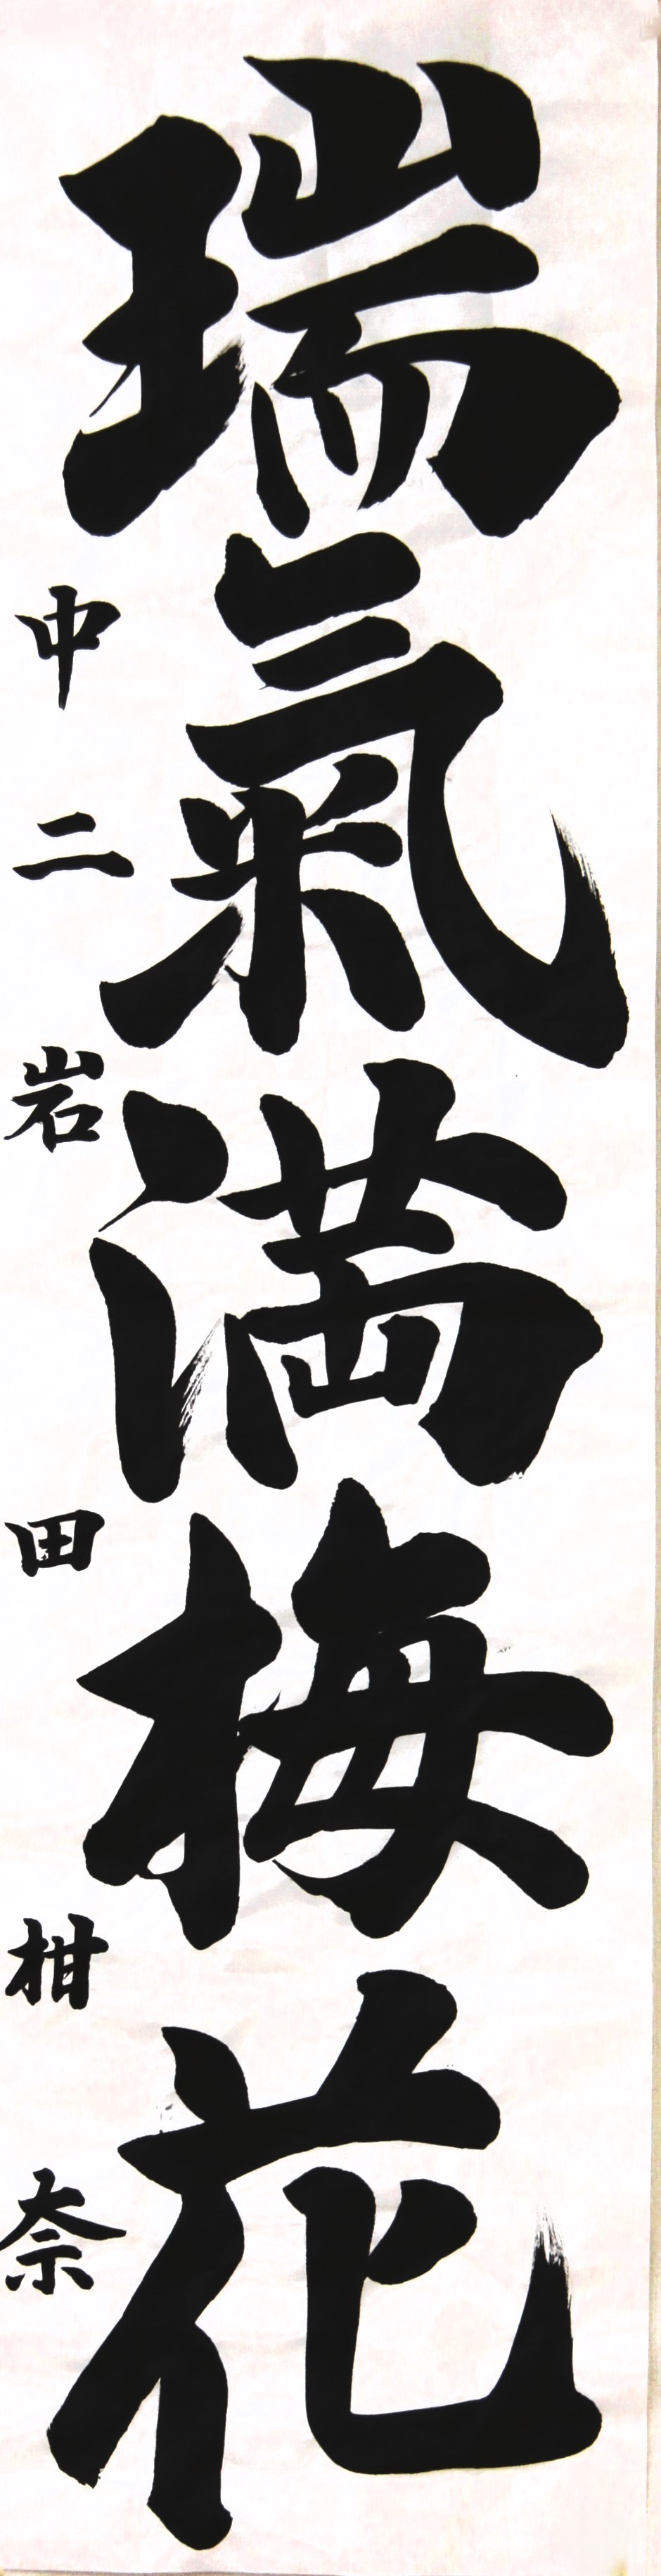 瑞氣満梅花
中二岩田柑奈